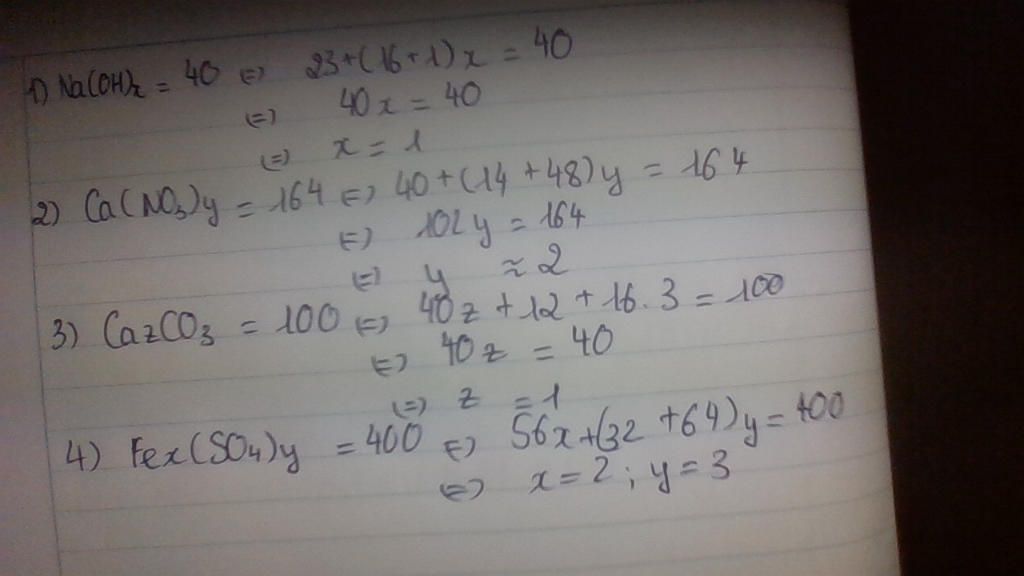 1) Na(OH)x = 40 <=> 23+(16+1)x = 40
<=> 40x = 40
<=> x = 1
2) Ca(NO3)y = 164 <=> 40+(14+48)y = 164
<=> 102y = 164
<=> y ≈ 2
3) CazCO3 = 100 <=> 40z + 12 + 16.3 = 100
<=> 40z = 40
<=> z = 1
4) Fex(SO4)y = 400 <=> 56x+(32+64)y = 400
<=> x = 2 ; y = 3